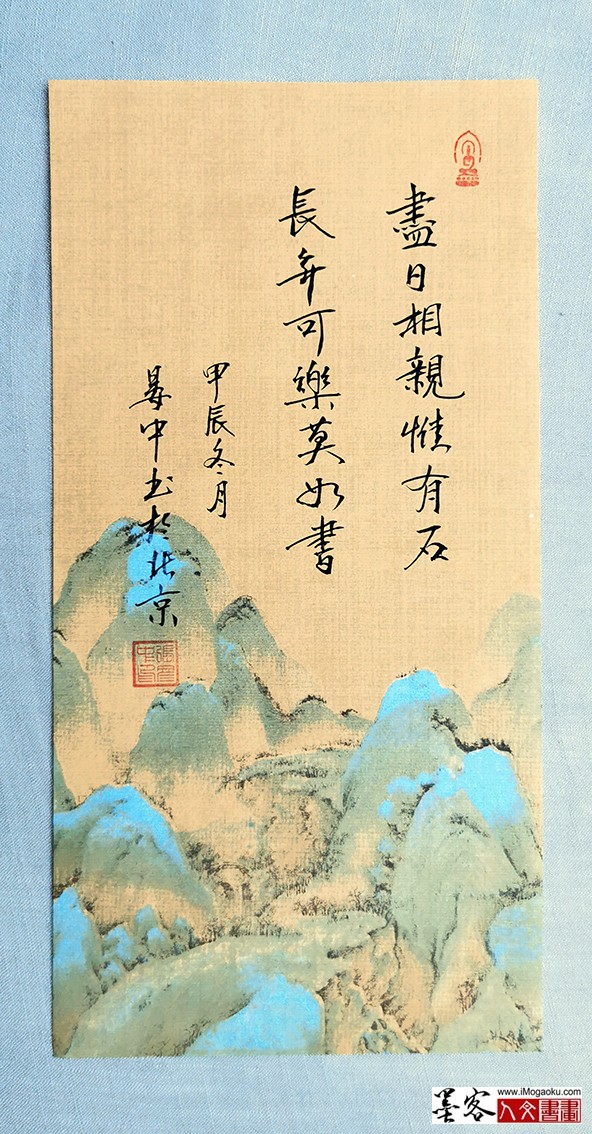 盡日相親惟有石
長年可樂莫如書
甲辰冬月
晏中书於北京
www.iMogaoku.com
墨客
人文書畫